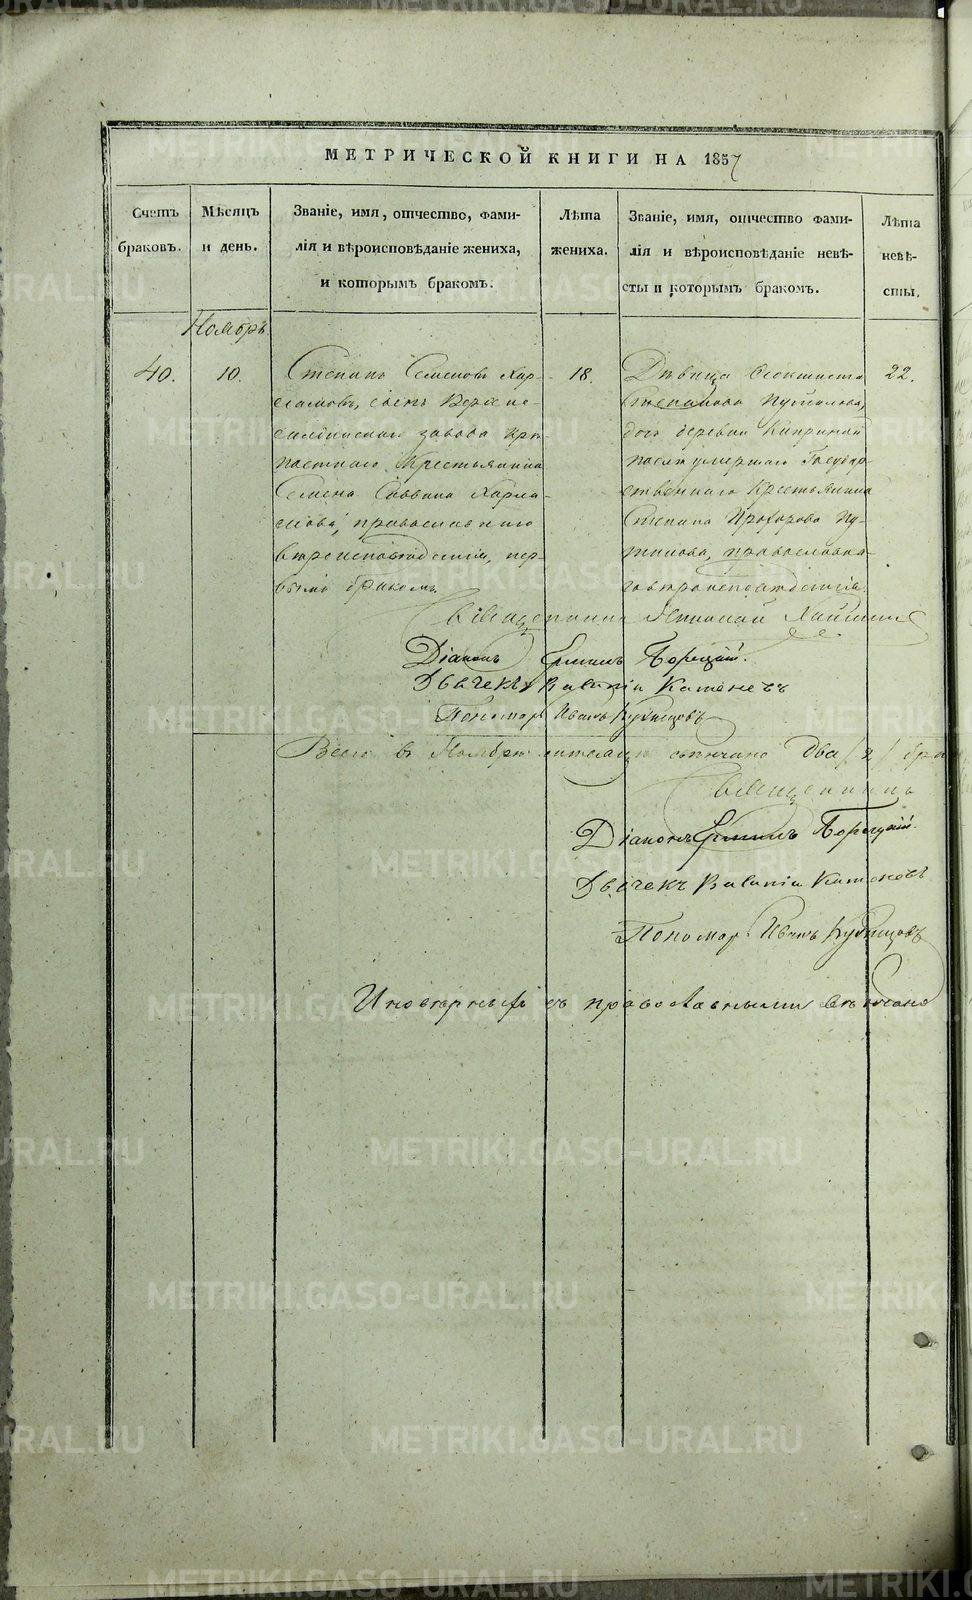 МЕТРИЧЕСКОЙ КНИГИ НА 1857
Счетъ браковъ.
Мѣсяцъ и день.
Званіе, имя, отчество, фами-
лія и вѣроисповѣданіе жениха,
и которымъ бракомъ.
Лѣта
жениха.
Званіе, имя, отчество фами-
лія и вѣроисповѣданіе невѣ-
сты и которымъ бракомъ.
Лѣта
невѣ-
сты.
Ноябрь
40.
10.
Степанъ Семеновъ Хар-
ламовъ, сынъ Верхне-
салдинскаго завода крѣ-
постнаго Крестьянина
Семена Саввина Харла-
мова, православнаго
вѣроисповѣданія, пер-
вымъ бракомъ
18.
Дѣвица Ѳеоктиста
Степанова Путилова,
дочь деревни
послѣ умершаго Государ-
ственнаго Крестьянина
Степана Прохорова Пу-
тилова, православна-
го вѣроисповѣданія
22.
Священникъ Николай
Діаконъ Ермилъ
Дьячекъ Каменевъ
Пономарь Иванъ Кузнецовъ
Всего въ Ноябрѣ мѣсяцѣ вѣнчано два /2/ бра
Священникъ
Діаконъ Ермилъ
Дьячекъ Каменевъ
Пономарь Иванъ Кузнецовъ
Иновѣрныхъ съ православными вѣнчано
METRIKI.GASO-URAL.RU